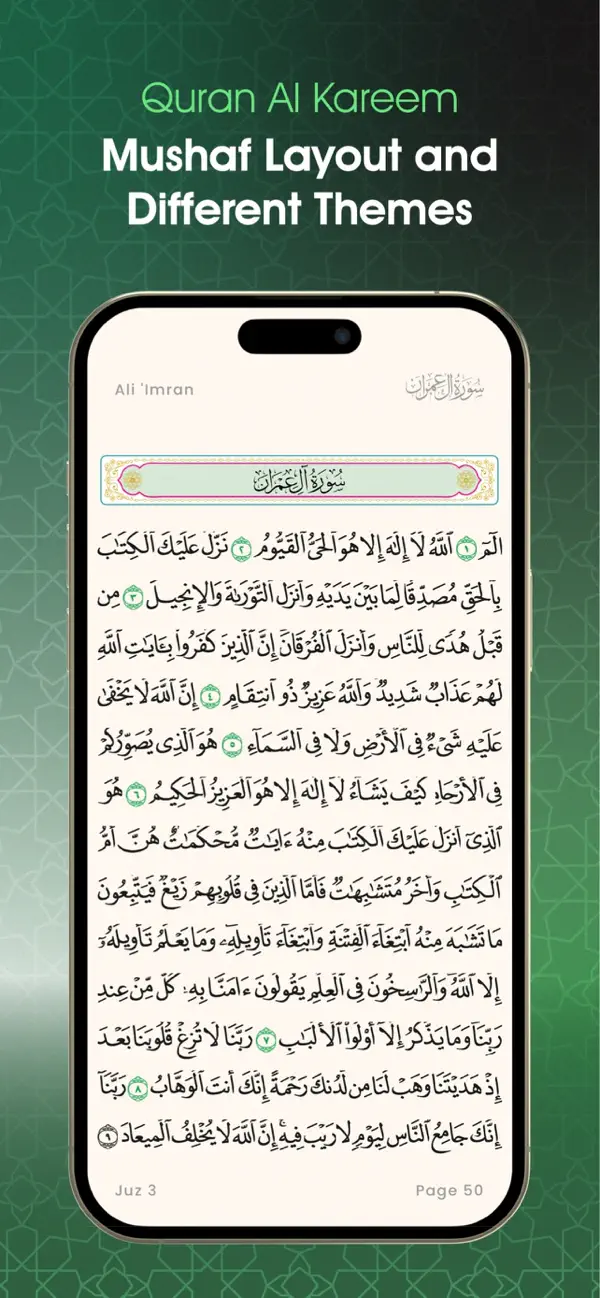 Quran Al Kareem
Mushaf Layout and
Different Themes
Ali 'Imran
سُورَةُ آلِ عِمۡرَان
سُورَةُ آلِ عِمۡرَان
الٓمٓ ١ ٱللَّهُ لَآ إِلَٰهَ إِلَّا هُوَ ٱلۡحَيُّ ٱلۡقَيُّومُ ٢ نَزَّلَ عَلَيۡكَ ٱلۡكِتَٰبَ
بِٱلۡحَقِّ مُصَدِّقٗا لِّمَا بَيۡنَ يَدَيۡهِ وَأَنزَلَ ٱلتَّوۡرَىٰةَ وَٱلۡإِنجِيلَ ٣ مِن
قَبۡلُ هُدٗى لِّلنَّاسِ وَأَنزَلَ ٱلۡفُرۡقَانَۗ إِنَّ ٱلَّذِينَ كَفَرُواْ بِـَٔايَٰتِ ٱللَّهِ
لَهُمۡ عَذَابٞ شَدِيدٞۗ وَٱللَّهُ عَزِيزٞ ذُو ٱنتِقَامٍ ٤ إِنَّ ٱللَّهَ لَا يَخۡفَىٰ
عَلَيۡهِ شَيۡءٞ فِي ٱلۡأَرۡضِ وَلَا فِي ٱلسَّمَآءِ ٥ هُوَ ٱلَّذِي يُصَوِّرُكُمۡ
فِي ٱلۡأَرۡحَامِ كَيۡفَ يَشَآءُۚ لَآ إِلَٰهَ إِلَّا هُوَ ٱلۡعَزِيزُ ٱلۡحَكِيمُ ٦ هُوَ
ٱلَّذِيٓ أَنزَلَ عَلَيۡكَ ٱلۡكِتَٰبَ مِنۡهُ ءَايَٰتٞ مُّحۡكَمَٰتٌ هُنَّ أُمُّ
ٱلۡكِتَٰبِ وَأُخَرُ مُتَشَٰبِهَٰتٞۖ فَأَمَّا ٱلَّذِينَ فِي قُلُوبِهِمۡ زَيۡغٞ فَيَتَّبِعُونَ
مَا تَشَٰبَهَ مِنۡهُ ٱبۡتِغَآءَ ٱلۡفِتۡنَةِ وَٱبۡتِغَآءَ تَأۡوِيلِهِۦۖ وَمَا يَعۡلَمُ تَأۡوِيلَهُۥٓ
إِلَّا ٱللَّهُۗ وَٱلرَّٰسِخُونَ فِي ٱلۡعِلۡمِ يَقُولُونَ ءَامَنَّا بِهِۦ كُلّٞ مِّنۡ عِندِ
رَبِّنَاۗ وَمَا يَذَّكَّرُ إِلَّآ أُوْلُواْ ٱلۡأَلۡبَٰبِ ٧ رَبَّنَا لَا تُزِغۡ قُلُوبَنَا بَعۡدَ
إِذۡ هَدَيۡتَنَا وَهَبۡ لَنَا مِن لَّدُنكَ رَحۡمَةًۚ إِنَّكَ أَنتَ ٱلۡوَهَّابُ ٨ رَبَّنَآ
إِنَّكَ جَامِعُ ٱلنَّاسِ لِيَوۡمٖ لَّا رَيۡبَ فِيهِۚ إِنَّ ٱللَّهَ لَا يُخۡلِفُ ٱلۡمِيعَادَ ٩
Juz 3
Page 50